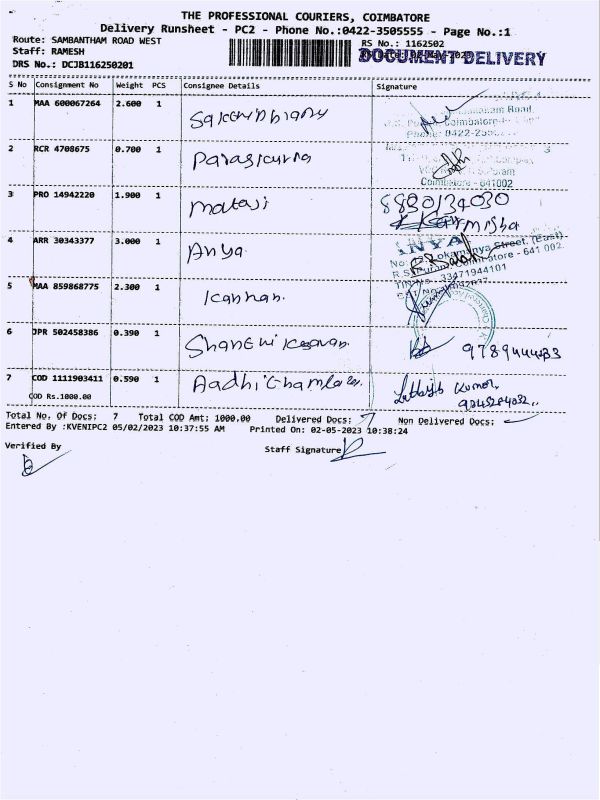 THE PROFESSIONAL COURIERS, COIMBATORE
Delivery Runsheet - PC2 - Phone No.:0422-3505555 - Page No.:1
Route: SAMBANTHAM ROAD WEST
RS No.: 1162502
Staff: RAMESH
DOCUMENT DELIVERY
DRS No.: DCJB116250201
S No Consignment No Weight PCS Consignee Details Signature
1 MAA 600067264 2.600 1
Road,
Phone: 0422-
2 RCR 4708675 0.700 1
Coimbatore - 641002
3 PRO 14942220 1.900 1 mataji 8890134030
4 ARR 30343377 3.000 1 Anya
Street, (East)
R.S. Puram, Coimbatore - 641 002.
33471944101
5 MAA 859868775 2.300 1 Kannan.
6 JPR 502458386 0.390 1 9789444433
7 COD 1111903411 0.590 1 Kumar
COD Rs.1000.00
Total No. Of Docs: 7 Total COD Amt: 1000.00 Delivered Docs: 7 Non Delivered Docs:
Entered By :KVENIPC2 05/02/2023 10:37:55 AM Printed On: 02-05-2023 10:38:24
Verified By
Staff Signature